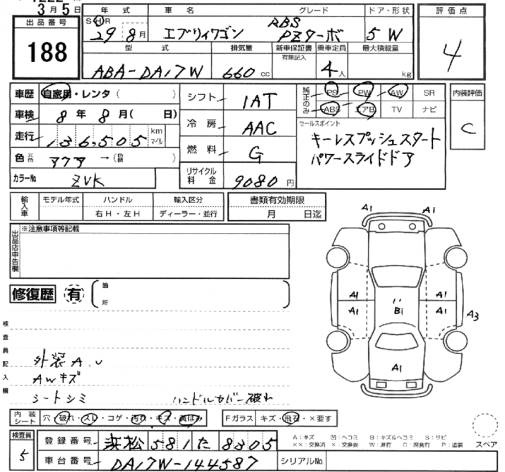 3月5日
出品番号
188
年式 車名 グレード ドア・形状
S・H・R 29年 8月 エブリィワゴン RBS PZターボ 5W
型式 排気量 新車保証書 有無記入 乗車定員 最大積載量
ABA-DA17W 660cc 4人 kg
評価点
4
車歴 自家用・レンタ( )
車検 8年8月( 日)
走行 136,505 km マイル
色 元色 アクア→(替 )
カラーNo. ZVK
シフト 1AT
冷房 AAC
燃料 G
リサイクル料金 9080円
純正のみ PS PW AW SR
ABS エアB TV ナビ
セールスポイント
キーレスプッシュスタート
パワースライドドア
内装評価
C
輸入車 モデル年式 ハンドル 輸入区分
右H・左H ディーラー・並行
書類有効期限
月 日迄
出品店申告欄
※注意事項等記載
修復歴 有
箇所
検査員記入欄
外装A.U
AWキズ
シートシミ ハンドルカバー破れ
A1 A1
A1 A1 B1 A1 A1 A3
A1
内装シート 穴・破れ・スレ・コゲ・汚れ・キズ・黄ばみ
Fガラス キズ・飛石・×要す
検査員
5
登録番号 浜松581た8305
車台番号 DA17W-144587
シリアルNo.
スペア